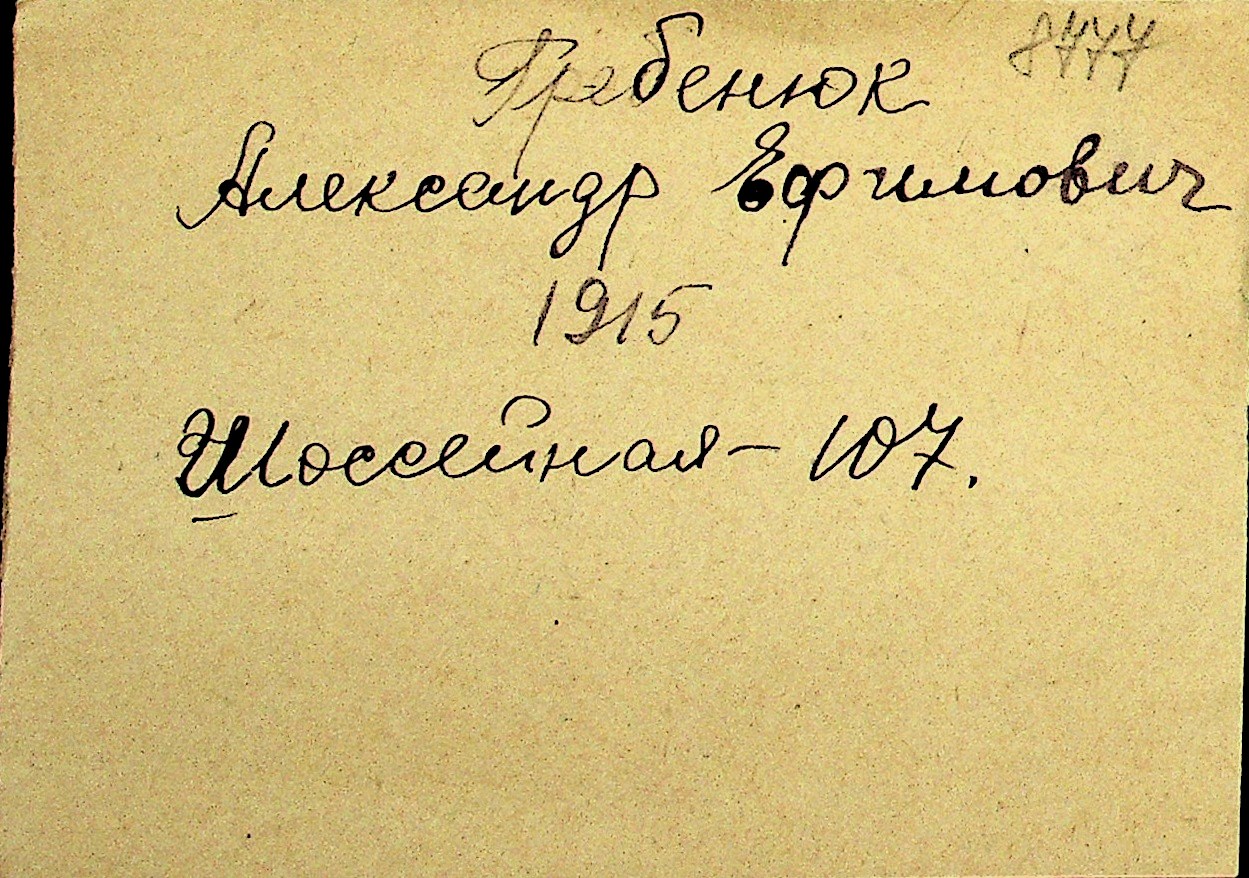 Гребенюк
Александр Ефимович
1915
Шоссейная - 107.